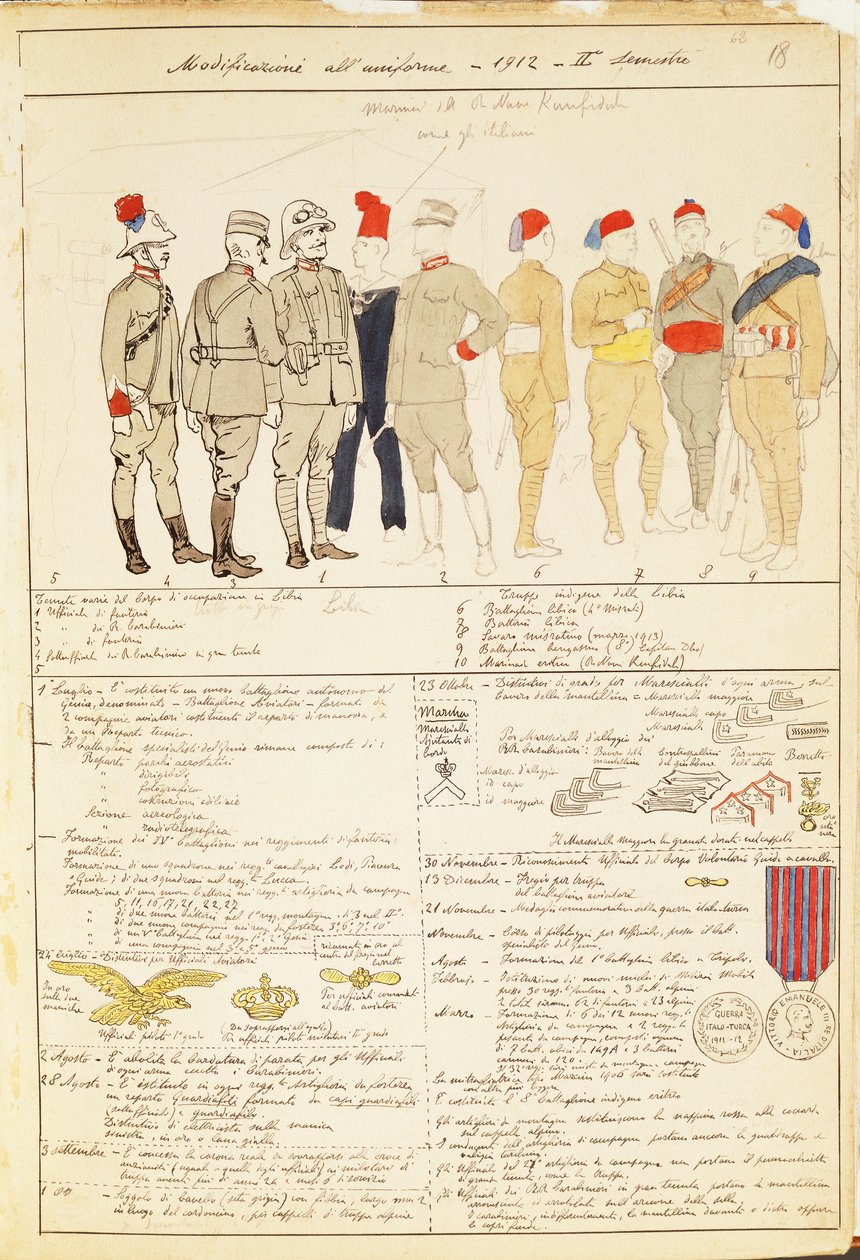 62
18
Modificazioni all'uniforme - 1912 - II° Semestre
Marinai del R. Nave Kunfidah
come gli italiani
5 4 3 1 2 6 7 8 9
Tenute varie del Corpo di occupazione in Libia
1 Ufficiali di fanteria
2 " dei R. Carabinieri
3 " di fanteria
4 Sottufficiale dei R. Carabinieri in gran tenuta
5
Truppe indigene della Libia
6 Battaglioni libici (4° Misrati)
7 Batteria libica
8 Savari misratini (marzo 1913)
9 Battaglione bengasino (8°)
10 Marinai eritrei (R. Nave Kunfidah)
1° Luglio - E' costituito un nuovo battaglione autonomo del
Genio, denominato - Battaglione Aviatori - formato da
2 compagnie aviatori costituenti il reparto di manovra, e
da un reparto tecnico.
- Il battaglione specialisti del Genio rimane composto di:
Reparto parchi aerostatici
" dirigibili
" fotografico
" costruzioni edilizie
Sezione aereologica
" radiotelegrafica
- Formazione dei IVi battaglioni nei reggimenti di fanteria
mobilitati.
Formazione di uno squadrone nei regg.ti cavalleggeri Lodi, Piacenza
e Guide; di due squadroni nel regg.to Lucca.
Formazione di una nuova batteria nei regg.ti artiglieria da campagna
5, 11, 16, 17, 21, 22, 27
" di due nuove batterie nel 1° regg. montagna e di 3 nel II°.
" di due nuove compagnie nei reg. da fortezza 3°, 6°, 7°, 10°
" di un V° battaglione nei regg. 1°, 2° Genio
" di una compagnia nel 3° e 5° genio
24 Luglio - Distintivi per Ufficiali Aviatori
ricamato in oro al
berretto
In oro
sulle due
maniche
Ufficiali piloti 1° grado
(Da sovrapporsi all'aquila)
Per ufficiali piloti militari II° grado
Per ufficiali comandati
al batt. aviatori
2 Agosto - E' abolita la bardatura di parata per gli Ufficiali
di ogni arma eccetto i Carabinieri.
28 Agosto - E' istituito in ogni regg.to Artiglieria da fortezza
un reparto Guardafili formato da capi guardafili
(sottufficiali) e guardafili.
Distintivo di elettricista sulla manica
sinistra, in oro o lana gialla.
3 settembre - E' concessa la corona reale da sovrapporsi alla croce di
anzianità (uguale a quella degli ufficiali) ai militari di
truppa aventi più di anni 24 e mesi 6 di servizio
- Soggolo di cuoio (tinta grigia) con fibbia, largo mm 2
in luogo del cordoncino, per cappelli di truppa alpine
23 Ottobre - Distintivi di grado per Marescialli d'ogni arma, sul
bavero della mantellina = Marescialli maggiori
Marescialli capo
Marescialli
Marina
Marescialli
Aiutanti di
bordo
Per Marescialli d'alloggio dei
RR. Carabinieri:
Bavero della
mantellina
Controspalline
del giubbone
Paramano
dell'abito
Berretto
Maresc. d'alloggio
id capo
id maggiore
oro
seta
nera
Il Maresciallo Maggiore ha granata dorata nel cappello
30 Novembre - Riconoscimento Ufficiale del Corpo Volontario Guide a cavallo.
13 Dicembre - Fregio per truppa
del battaglione aviatori
21 Novembre - Medaglia commemorativa della guerra italo-turca
Novembre - Corso di pilotaggio per Ufficiali, presso il batt.
specialisti del Genio.
Agosto - Formazione del 1° battaglione libico a Tripoli.
Febbraio - Istituzione di nuovi nuclei di Milizia Mobile
presso 30 regg.ti fanteria e 3 batt. alpini
Marzo - Formazione di 6 dei 12 nuovi regg.ti
Artiglieria da campagna e 2 regg.ti
pesanti da campagna, composti ognuno
di 7 batt. obici da 149 A e 3 batterie
cannoni da 120.
La mitragliatrice tipo Maxim 1906 sarà sostituita
con altra più leggera
E' costituito l'8° battaglione indigeno eritreo
Gli artiglieri da montagna sostituiscono la nappina rossa alla coccarda
sul cappello alpino.
I conducenti dell'artiglieria di campagna portano ancora la gualdrappa e
valigia turchina.
Gli Ufficiali del 27° artiglieria da campagna non portano il pennacchietto
di grande tenuta, come la truppa.
Gli Ufficiali dei RR Carabinieri in gran tenuta portano la mantellina
arrovesciata e arrotolata sull'arcione della sella.
I carabinieri, indifferentemente, la mantellina davanti o dietro oppure
la coprifonda.
GUERRA
ITALO-TURCA
1911-12
VITTORIO EMANUELE III RE D'ITALIA